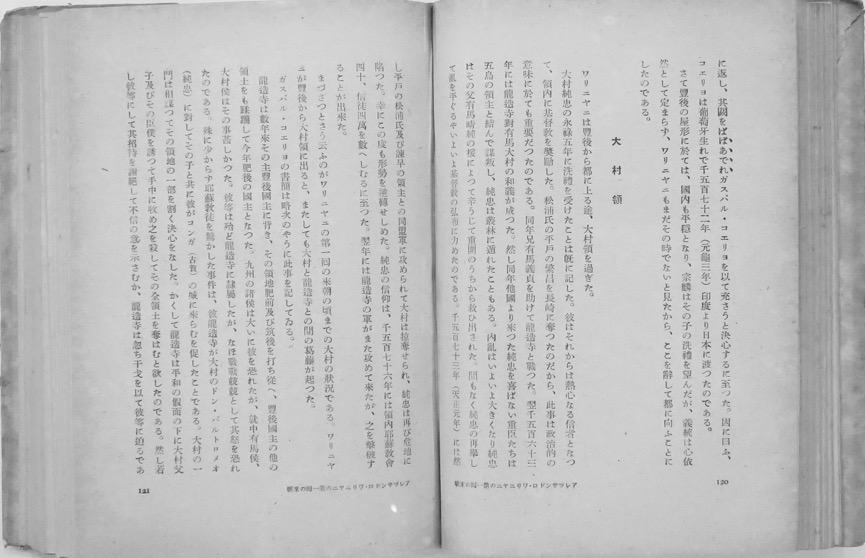 に返し、其闕をばあでれガスパル・コエリヨを以て充さうと決心するに至つた。因に曰ふ、
コエリヨは葡萄牙生れで千五百七十二年（元龜三年）印度より日本に渡つたのである。
さて豐後の屋形に於ては、國内も平穩となり、宗麟はその子の洗禮を望んだが、義統は心依
然として定まらず、ワリニヤニもまだその時でないと見たから、ここを辭して都に向ふことに
したのである。
大村領
ワリニヤニは豐後から都に上る途、大村領を過ぎた。
大村純忠の永祿五年に洗禮を受けたことは旣に記した。彼はそれからは熱心なる信者となつ
て、領内に基督敎を奬勵した。松浦氏の平戸の繁昌を長崎に奪つたのだから、此事は政治的の
意味に於ても重要だつたのである。同年兄有馬義貞を助けて龍造寺と戰つた。翌千五百六十三
年には龍造寺對有馬大村の和義が成つた。然し同年他國より來つた純忠を喜ばない重臣たちは
五島の領主と結んで謀叛し、純忠は叢林に遁れたこともある。内亂はいよいよ大きくなり純忠
はその父有馬晴純の援によつて辛うじて重圍のうちから救ひ出された。間もなく純忠の再擧し
て亂を手ぐるやいよいよ基督敎の弘布に力めたのである。千五百七十三年（天正元年）には然
120
アレツサンドロ・ワリニヤニの第一回の來朝
し平戸の松浦氏及び諫早の領主との同盟軍に攻められて大村は掠奪せられ、純忠は再び危地に
陷つた。幸にこの度も形勢を逆轉せしめた。純忠の信仰は、千五百七十六年には領内耶蘇敎會
四十、信徒四萬を數へしむるに至つた。翌年には龍造寺の軍がまた攻めて來たが、之を擊破す
ることが出來た。
まづざつとさう云ふのがワリニヤニの第一回の來朝の頃までの大村の狀況である。ワリニヤ
ニが豐後から大村領に出ると、またしても大村と龍造寺との間の葛藤が起つた。
ガスパル・コエリヨの書簡は略次のやうに此事を記してゐる。
龍造寺は數年來その主豐後國主に背き、その領地肥前及び筑後を打ち從へ、豐後國主の他の
領土をも蹂躪して今年肥後の國主となつた。九州の諸侯は大いに彼を恐れたが、就中有馬侯、
大村侯はその事甚しかつた。彼等は殆ど龍造寺に隷屬したが、なほ戰戰兢兢として其怒を恐れ
たのである。殊に少からず耶蘇敎徒を驚かした事件は、彼龍造寺が大村のドン・バルトロメオ
（純忠）に對してその子と共に彼がコンガ（古賀）の城に來らむを促したことである。大村の一
門は相謀つてその領地の一部を割く決心をなした。かくして龍造寺は平和の假面の下に大村父
子及びその臣僕を誘つて手中に收め之を殺してその全領土を奪はむと欲したのである。然し若
し彼等にして其招待を謝絶して不信の意を示さむか、龍造寺は忽ち干戈を以て彼等に迫るであ
アレツサンドロ・ワリニヤニの第一回の來朝
121